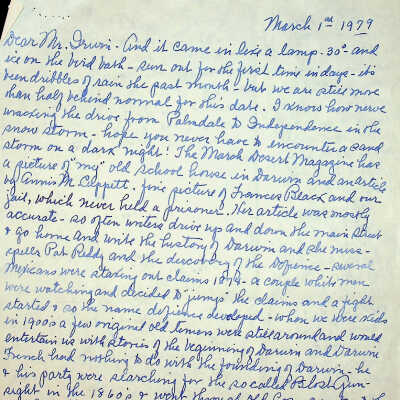 March 1st 1979
Dear Mr. Irwin - And it came in like a lamp. 30° and
ice on the bird bath - sun out for the first time in days - it's
been dribbles of rain the past month - but we are still more
than half behind normal for this date. I know how nerve
wracking the drive from Palmdale to Independence in the
snow storm - hope you never have to encounter a sand
storm on a dark night. The March Desert Magazine has
a picture of "my" old school house in Darwin and an article
by Annis M. Cuppett. fine picture of Frances Black and our
jail, which never held a prisoner. Her article was mostly
accurate - so often writers drive up and down the main street
& go home and write the history of Darwin and she miss-
spells Pat Reddy and the discovery of the Defience - several
Mexicans were staking out claims 1874 - a couple white men
were watching and decided to "jump" the claims and a fight
started & so the name defience developed - when we were kids
in 1900's a few original old timers were still around and would
entertain us with stories of the beginning of Darwin and Darwin
French had nothing to do with the founding of Darwin - he
& his party were searching for the so called Lost Gun-
sight in the 1860's & went through old